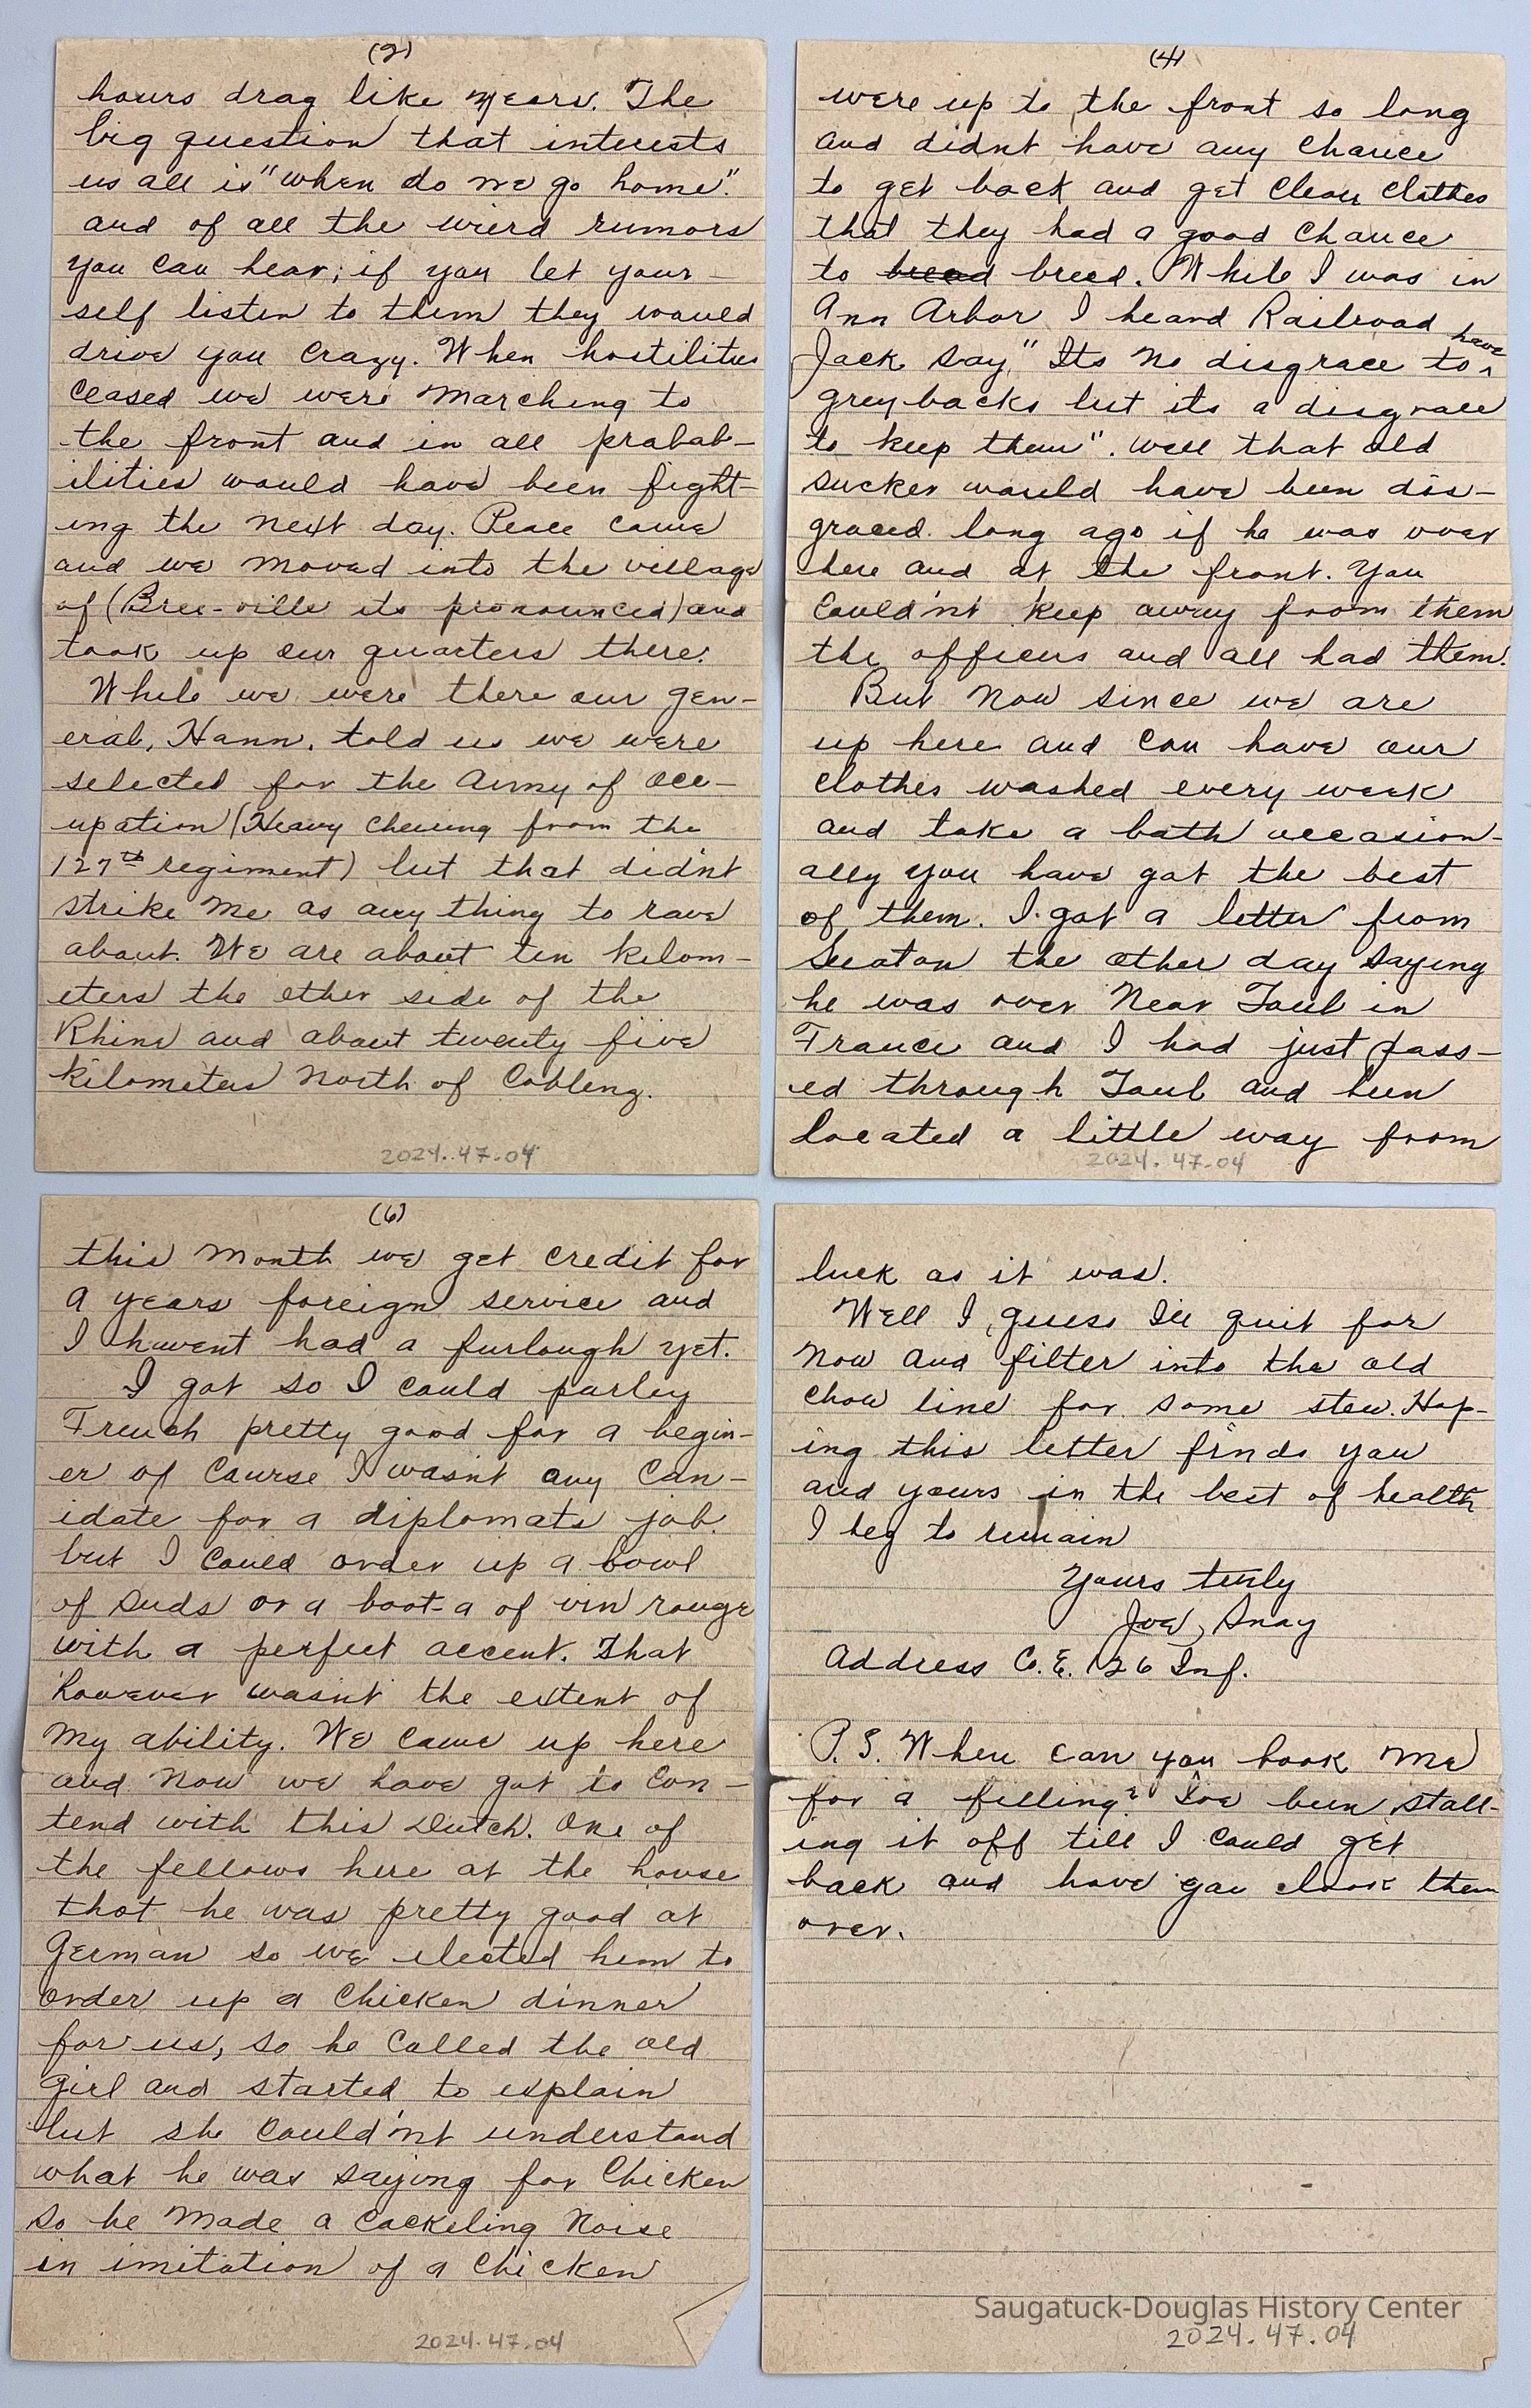 (2)
hours drag like years. The
big question that interests
us all is "when do we go home".
and of all the wierd rumors
you can hear; if you let your-
self listen to them they would
drive you crazy. When hostilities
ceased we were marching to
the front and in all probab-
ilities would have been fight-
ing the next day. Peace came
and we moved into the village
of (Bree-ville its pronounced) and
took up our quarters there.
While we were there our gen-
eral, Hann, told us we were
selected for the Army of Occ-
upation (Heavy cheering from the
127th regiment) but that didn't
strike me as any thing to rave
about. We are about ten kilom-
eters the other side of the
Rhine and about twenty five
kilometers north of Coblenz.
2024.47.04
(4)
were up to the front so long
and didnt have any chance
to get back and get clean clothes
that they had a good chance
to bread breed. While I was in
Ann Arbor I heard Railroad
Jack say, "Its no disgrace to have
greybacks but its a disgrace
to keep them". Well that old
sucker would have been dis-
graced long ago if he was over
here and at the front. You
could'nt keep away from them
the officers and all had them.
But now since we are
up here and can have our
clothes washed every week
and take a bath occasion-
ally you have got the best
of them. I got a letter from
Seaton the other day saying
he was over near Toul in
France and I had just pass-
ed through Toul and been
located a little way from
2024.47.04
(6)
this month we get credit for
a years foreign service and
I havent had a furlough yet.
I got so I could parley
French pretty good for a begin-
er of course I wasnt any can-
idate for a diplomats job.
but I could order up a bowl
of suds or a boot-a of vin rouge
with a perfect accent. That
however wasnt the extent of
my ability. We came up here
and now we have got to con-
tend with this Dutch. One of
the fellows here at the house
thot he was pretty good at
German so we elected him to
order up a chicken dinner
for us, so he called the old
girl and started to explain
but she could'nt understand
what he was saying for chicken
so he made a cackeling noise
in imitation of a chicken
2024.47.04
luck as it was.
Well I guess Ill quit for
now and filter into the old
chow line for some stew. Hop-
ing this letter finds you
and yours in the best of health
I beg to remain
Yours truly
Joe, Snay
Address Co. E. 126 Inf.
P.S. When can you book me
for a filling? Ive been stall-
ing it off till I could get
back and have you look them
over.
Saugatuck-Douglas History Center
2024.47.04